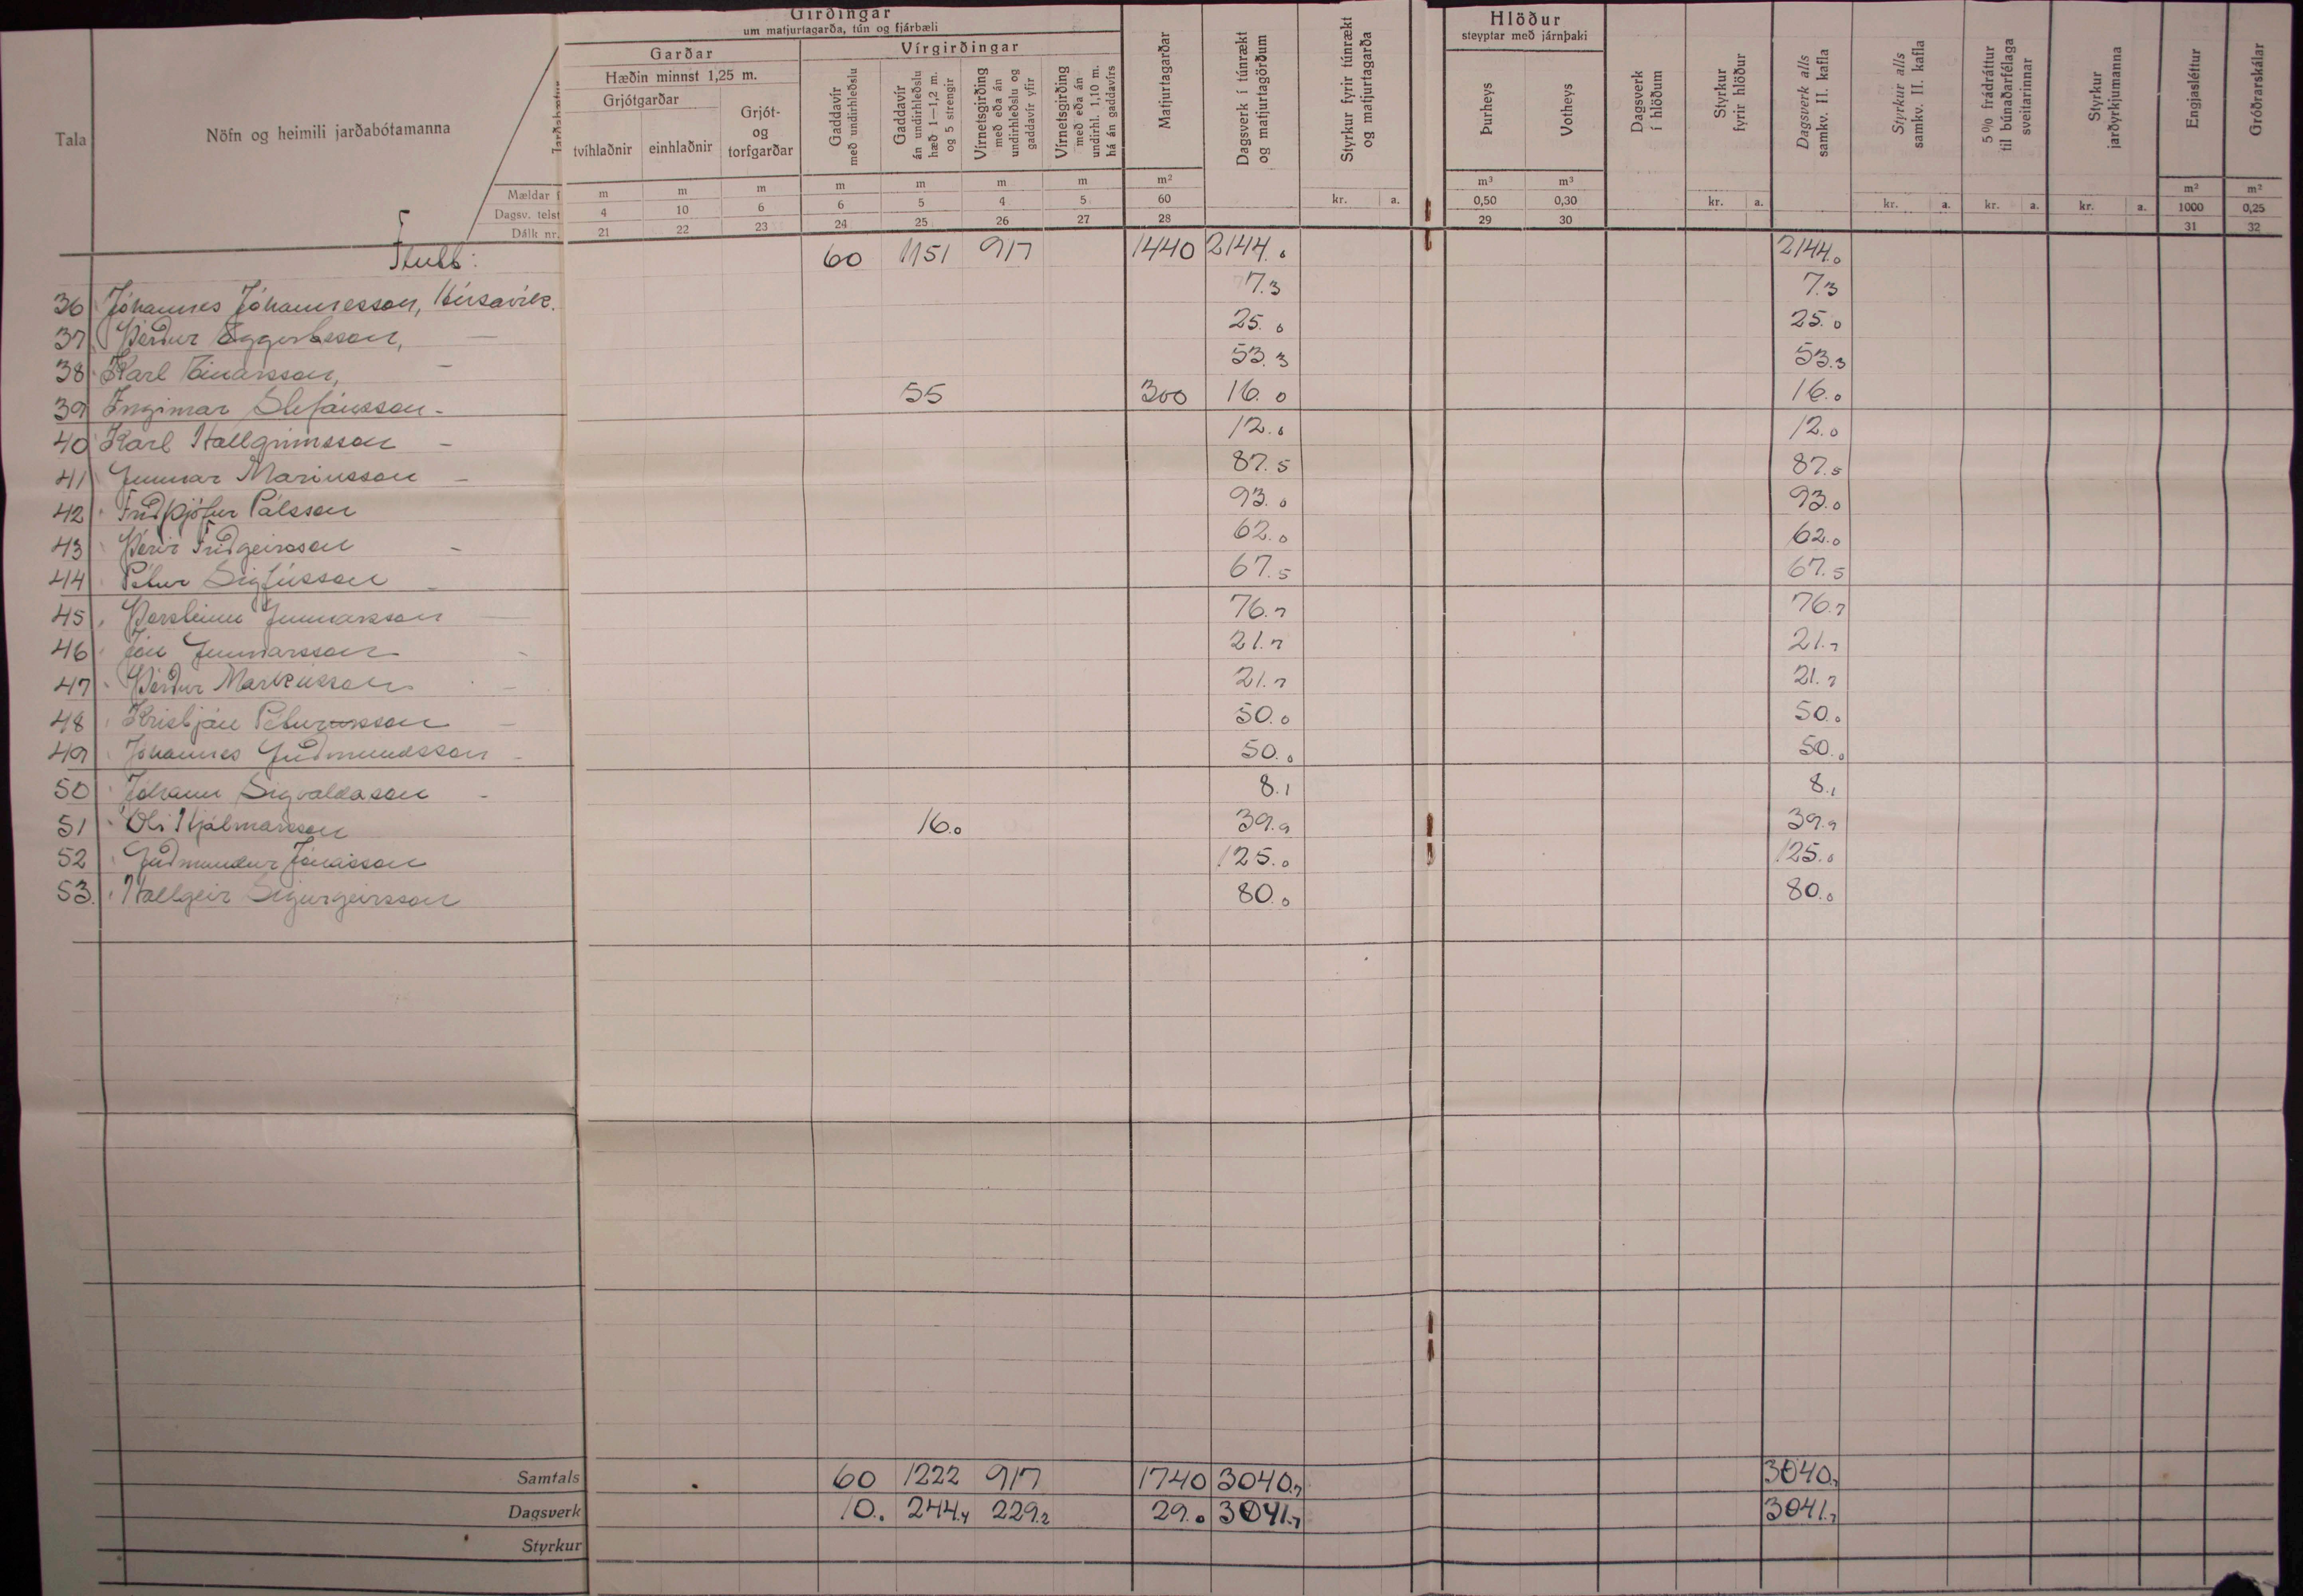 Girðingar
um matjurtagarða, tún og fjárbæli
Hlöður
steyptar með járnþaki
Garðar
Vírgirðingar
Hæðin minnst 1,25 m.
Grjótgarðar
Tala
Nöfn og heimili jarðabótamanna
tvíhlaðnir
einhlaðnir
Grjót-
og
torfgarðar
Gaddavír
með undirhleðslu
Gaddavír
án undirhleðslu
hæð 1—1,2 m.
og 5 strengir
Vírnetsgirðing
með eða án
undirhleðslu og
gaddavír yfir
Vírnetsgirðing
með eða án
undirhl. 1,10 m.
há án gaddavírs
Matjurtagarðar
Dagsverk í túnrækt
og matjurtagörðum
Styrkur fyrir túnrækt
og matjurtagarða
Þurheys
Votheys
Dagsverk
í hlöðum
Styrkur
fyrir hlöður
Dagsverk alls
samkv. II. kafla
Styrkur alls
samkv. II. kafla
5% frádráttur
til búnaðarfélaga
sveitarinnar
Styrkur
jarðyrkjumanna
Engjasléttur
Gróðrarskálar
Mældar í m m m m m m m m² m³ m³ m² m²
Dagsv. telst 4 10 6 6 5 4 5 60 kr. a. 0,50 0,30 kr. a. kr. a. kr. a. kr. a. 1000 0,25
Dálk nr. 21 22 23 24 25 26 27 28 29 30 31 32
Flutt: 60 1151 917 1440 2144.0 2144.0
36 Jóhannes Jóhannesson, Húsavík. 7.3 7.3
37 Þórður Eggertsson, — 25.0 25.0
38 Karl Einarsson, — 53.3 53.3
39 Ingimar Stefánsson - 55 300 16.0 16.0
40 Karl Hallgrímsson — 12.0 12.0
41 Gunnar Maríusson — 87.5 87.5
42 Friðþjófur Pálsson 93.0 93.0
43 Þórir Friðgeirsson — 62.0 62.0
44 Pétur Sigfússon — 67.5 67.5
45 Þorsteinn Gunnarsson — 76.7 76.7
46 Jón Gunnarsson - 21.7 21.7
47 Þórður Markússon — 21.7 21.7
48 Kristján Pétursson — 50.0 50.0
49 Jóhannes Guðmundsson - 50.0 50.0
50 Jóhann Sigvaldason - 8.1 8.1
51 Óli Hjálmarsson 16.0 39.9 39.9
52 Guðmundur Jónasson 125.0 125.0
53. Hallgeir Sigurgeirsson 80.0 80.0
Samtals 60 1222 917 1740 3040.7 3040.7
Dagsverk 10.0 244.4 229.2 29.0 3041.7 3041.7
Styrkur